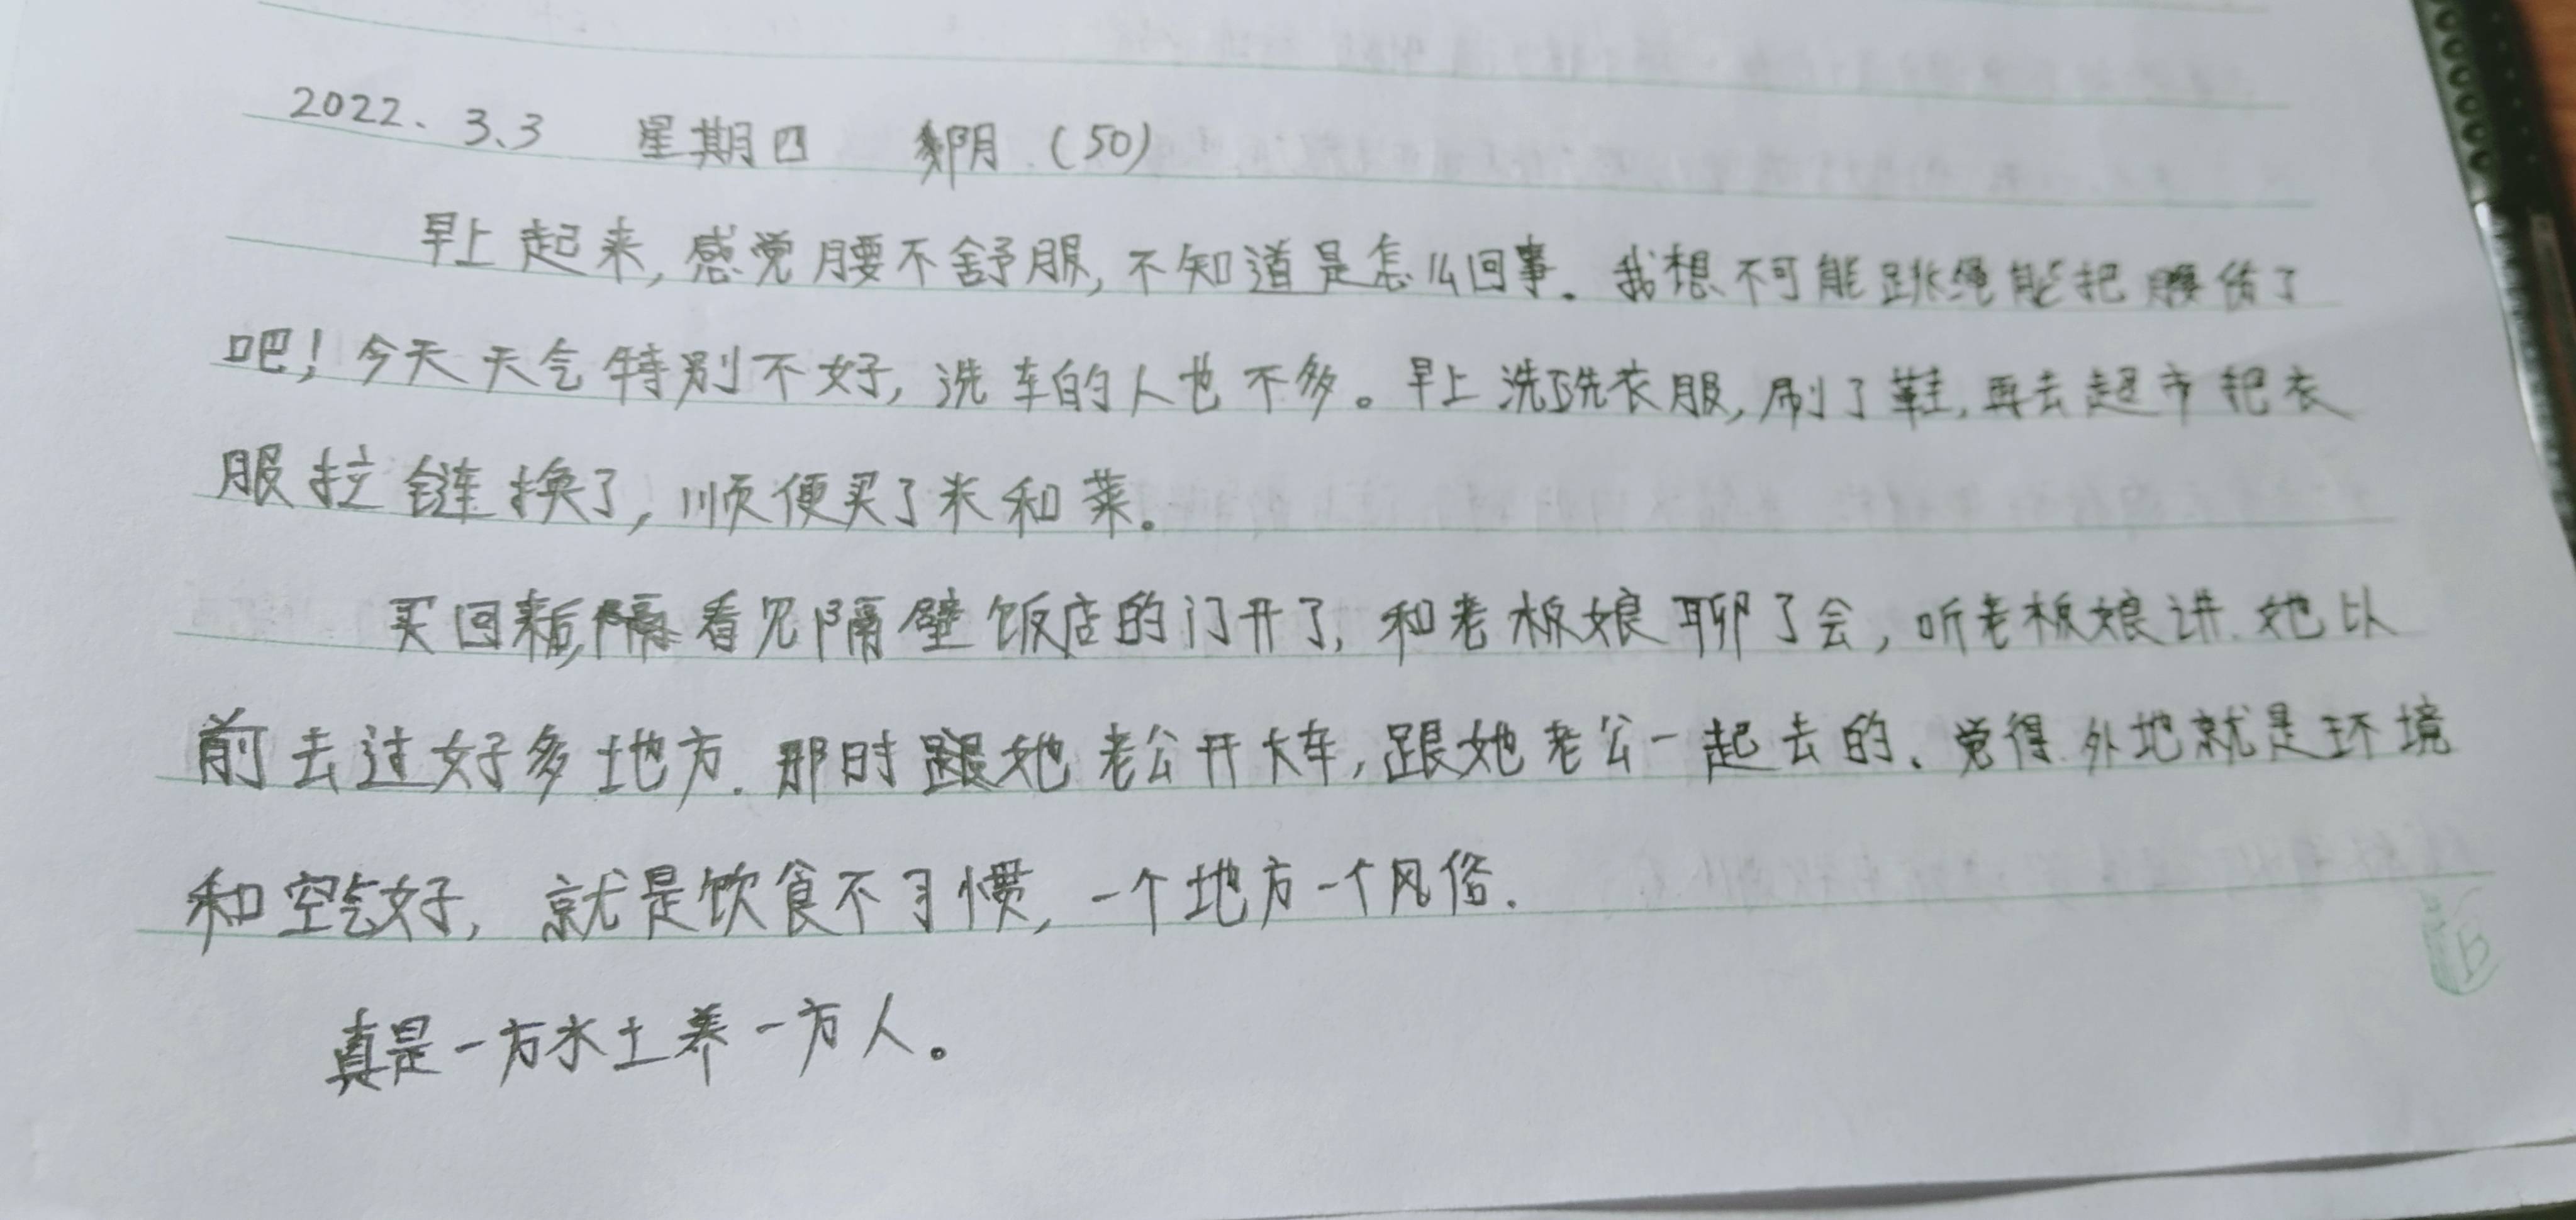 2022、3.3 星期四 阴(50)
早上起来,感觉腰不舒服,不知道是怎么回事。我想不可能跳绳能把腰 了
吧!今天天气特别不好,洗车的人也不多。早上洗洗衣服,刷了鞋,再去超市把衣
服拉链换了,顺便买了米和菜。
买回来后,看见隔壁饭店的门开了,和老板娘聊了会,听老板娘讲.她以
前去过好多地方.那时跟她老公开大车,跟她老公一起去的、觉得外地就是环境
和空气好,就是饮食不习惯,一个地方一个风俗.
真是一方水土养一方人。